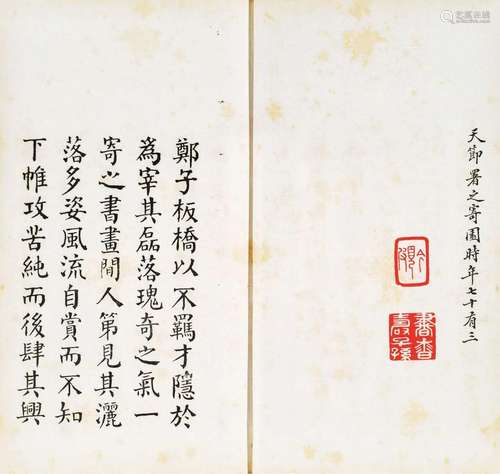 天節署之寄園時年七十有三
鄭子板橋以不羈才隱於
為宰其磊落瑰奇之氣一
寄之書畫間人第見其灑
落多姿風流自賞而不知
下帷攻苦純而後肆其興